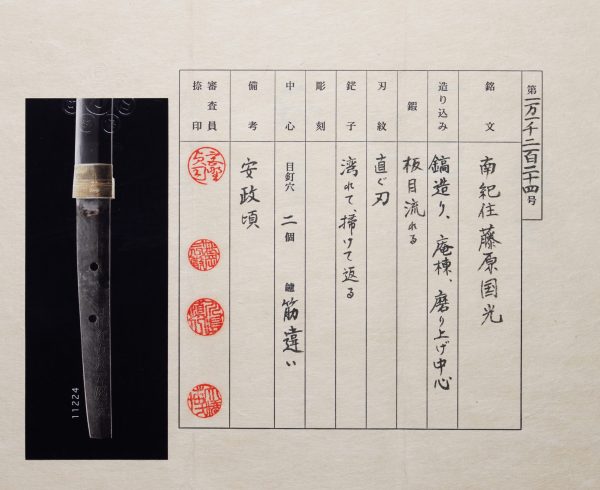 第一万一千二百二十四号
銘文 南紀住藤原国光
造り込み 鎬造り、庵棟、磨り上げ中心
鍛 板目流れる
刃紋 直ぐ刃
鋩子 湾れて、掃けて返る
彫刻
中心 目釘穴 二個 鑢 筋違い
備考 安政頃
審査員捺印
11224